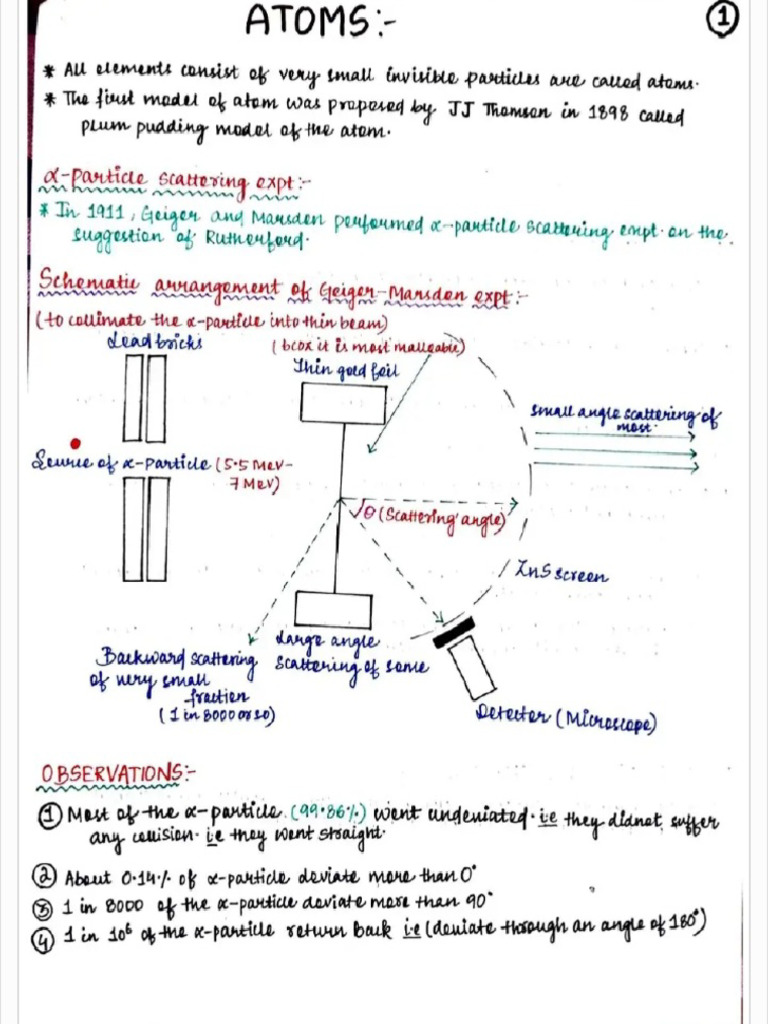 ATOMS:-
1
* All elements consist of very small invisible particles are called atoms.
* The first model of atom was proposed by JJ Thomson in 1898 called
plum pudding model of the atom.
α-particle scattering expt:-
* In 1911, Geiger and Marsden performed α-particle scattering empt. on the
suggestion of Rutherford.
Schematic arrangement of Geiger-Marsden expt:-
(to collimate the α-particle into thin beam)
Lead bricks
(bcox it is most malleable)
Thin gold foil
small angle scattering of
most.
Source of α-particle (5.5 MeV-
7 MeV)
θ (Scattering angle)
ZnS screen
Large angle
scattering of some
Backward scattering
of very small
fraction
(1 in 8000 or so)
Detector (Microscope)
OBSERVATIONS:-
1 Most of the α-particle (99.86%) went undeviated. i.e they didnot suffer
any collision. i.e they went straight.
2 About 0.14% of α-particle deviate more than 0°
3 1 in 8000 of the α-particle deviate more than 90°
4 1 in 10⁶ of the α-particle return back i.e (deviate through an angle of 180°)